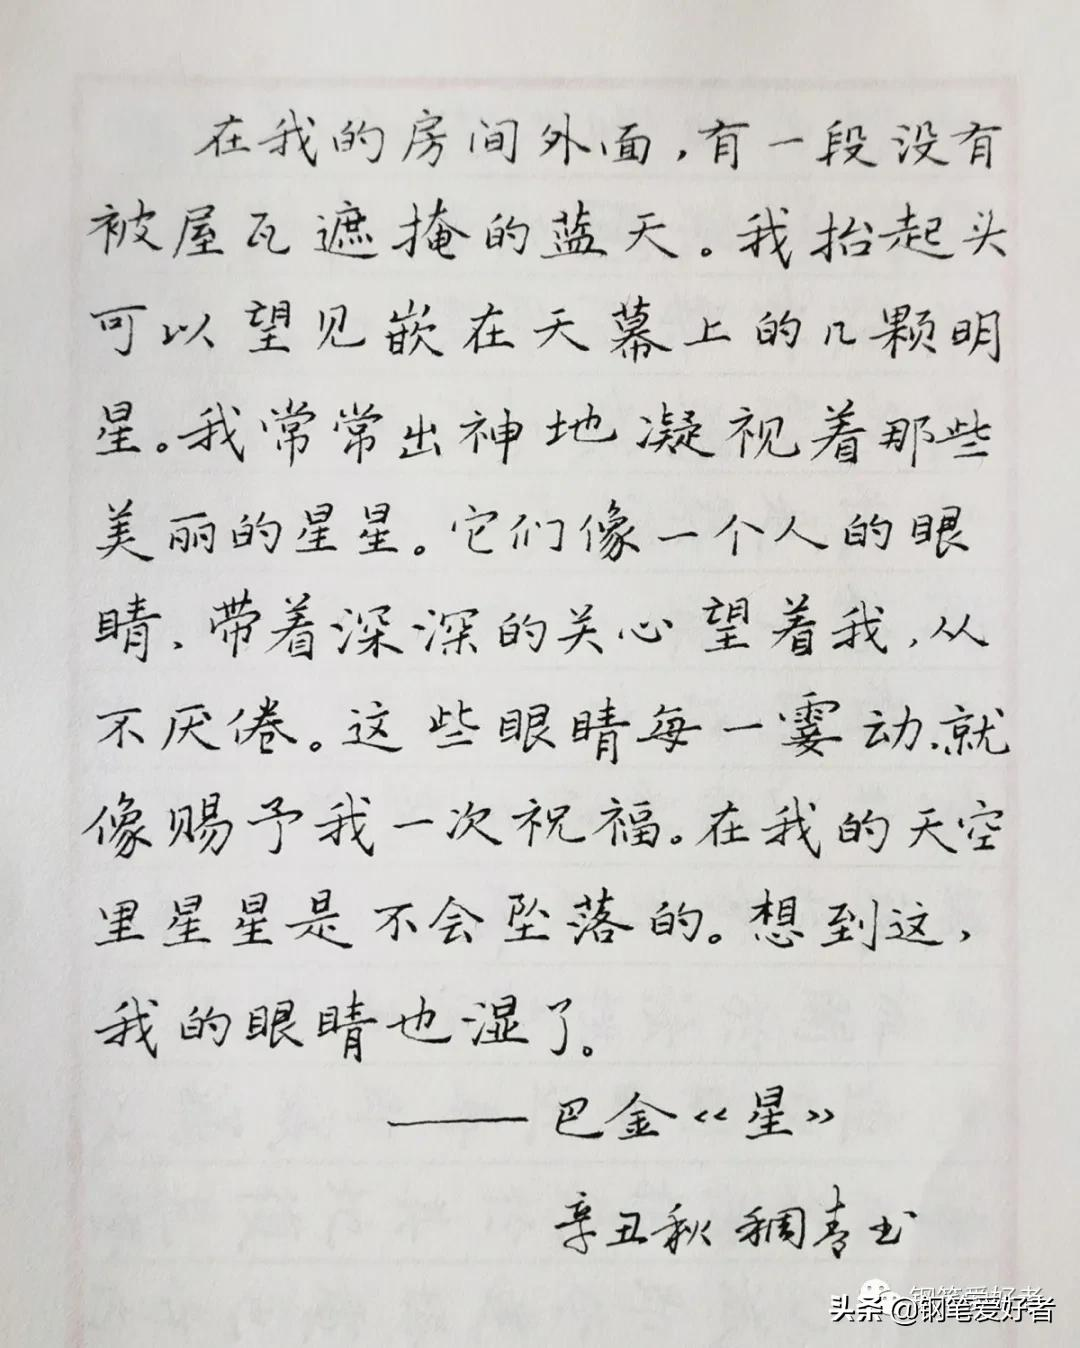 在我的房间外面，有一段没有
被屋瓦遮掩的蓝天。我抬起头
可以望见嵌在天幕上的几颗明
星。我常常出神地凝视着那些
美丽的星星。它们像一个人的眼
睛、带着深深的关心望着我，从
不厌倦。这些眼睛每一霎动、就
像赐予我一次祝福。在我的天空
里星星是不会坠落的。想到这，
我的眼睛也湿了。
——巴金《星》
辛丑秋 稠青书
钢笔爱好者
头条 @钢笔爱好者